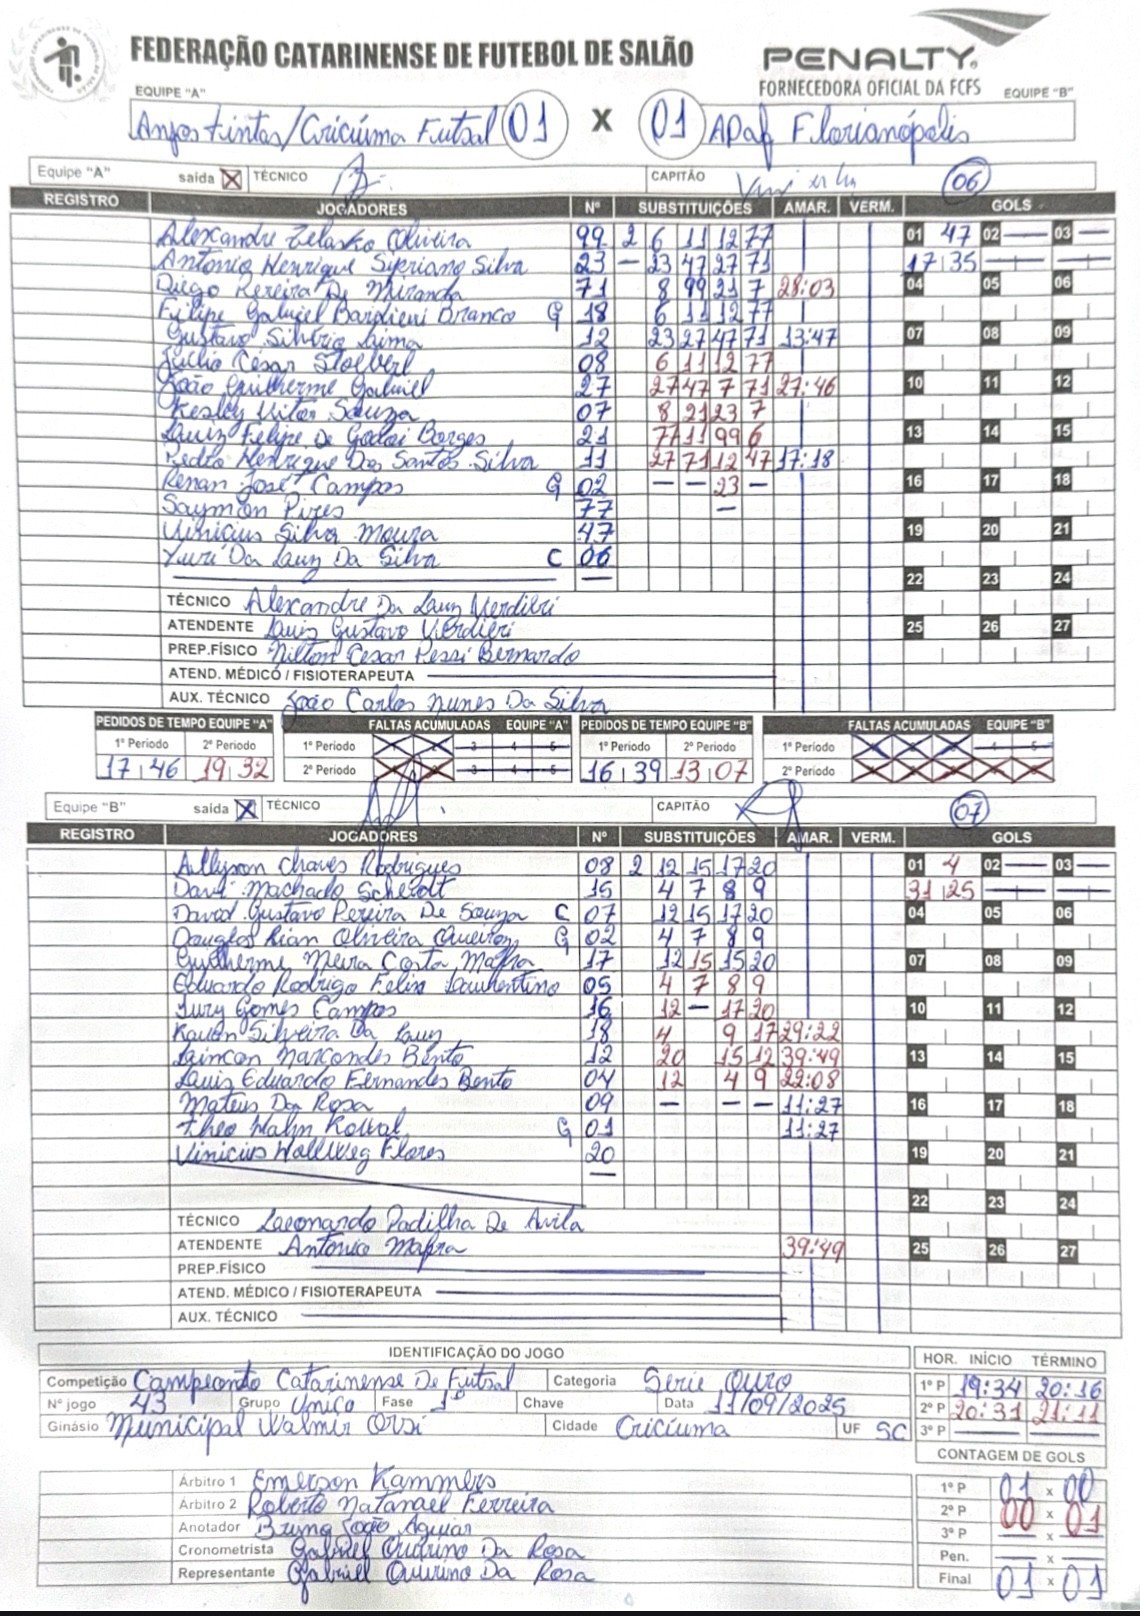 FEDERAÇÃO CATARINENSE DE FUTEBOL DE SALÃO
PENALTY
FORNECEDORA OFICIAL DA FCFS
EQUIPE "A" EQUIPE "B"
Anjos Tintas/Criciúma Futsal 01 X 01 Apaf Florianópolis
Equipe "A" saída X TÉCNICO CAPITÃO 06
REGISTRO JOGADORES Nº SUBSTITUIÇÕES AMAR. VERM. GOLS
Alexandre Zelasko Oliveira 99 2 6 11 12 77 01 47 02 — 03 —
Antonio Henrique Sipriano Silva 23 — 23 47 27 71 17 35
Diego Pereira De Miranda 71 8 99 21 7 28:03 04 05 06
Filipe Gabriel Bardieni Branco G 18 6 11 12 77
Gustavo Silvério Lima 12 23 27 47 71 13:47 07 08 09
Júlio César Stolberl 08 6 11 12 77
João Guilherme Gabriel 27 27 47 7 71 27:46 10 11 12
Kesley Vitor Souza 07 8 21 23 7
Luiz Felipe De Godoi Borges 21 77 11 99 6 13 14 15
Pedro Henrique Dos Santos Silva 11 27 71 12 47 17:18
Renan José Campos G 02 — — 23 — 16 17 18
Saymon Pires 77 —
Vinicius Silva Moura 47 19 20 21
Yuri Da Luz Da Silva C 06
— 22 23 24
TÉCNICO Alexandre Da Luz Verdieri
ATENDENTE Luis Gustavo Verdieri 25 26 27
PREP.FÍSICO Nilton Cesar Pessi Bernardo
ATEND. MÉDICO / FISIOTERAPEUTA —
AUX. TÉCNICO João Carlos Nunes Da Silva
PEDIDOS DE TEMPO EQUIPE "A" FALTAS ACUMULADAS EQUIPE "A" PEDIDOS DE TEMPO EQUIPE "B" FALTAS ACUMULADAS EQUIPE "B"
1º Período 2º Período 1º Período 1 2 3 4 5 1º Período 2º Período 1º Período 1 2 3 4 5
17 46 19 32 2º Período 1 2 3 4 5 16 39 13 07 2º Período 1 2 3 4 5
Equipe "B" saída X TÉCNICO CAPITÃO 07
REGISTRO JOGADORES Nº SUBSTITUIÇÕES AMAR. VERM. GOLS
Allyson Chaves Rodrigues 08 2 12 15 17 20 01 4 02 — 03 —
Davi Machado Scheidt 15 4 7 8 9 31 25
David Gustavo Pereira De Souza C 07 12 15 17 20 04 05 06
Douglas Rian Oliveira Queiroz G 02 4 7 8 9
Guilherme Meira Costa Mafra 17 12 15 15 20 07 08 09
Eduardo Rodrigo Felix Laurentino 05 4 7 8 9
Iury Gomes Campos 16 12 — 17 20 10 11 12
Kauan Silveira Da Luz 18 4 9 17 29:22
Laincon Marcondes Bento 12 20 15 12 39:49 13 14 15
Luis Eduardo Fernandes Bento 04 12 4 9 22:08
Mateus Da Rosa 09 — — — 11:27 16 17 18
Theo Hahn Kowal G 01 11:27
Vinicius Hallweg Flores 20 19 20 21
—
22 23 24
TÉCNICO Leonardo Padilha De Avila
ATENDENTE Antonio Mafra 39:49 25 26 27
PREP.FÍSICO —
ATEND. MÉDICO / FISIOTERAPEUTA —
AUX. TÉCNICO —
IDENTIFICAÇÃO DO JOGO HOR. INÍCIO TÉRMINO
Competição Campeonato Catarinense De Futsal Categoria Série Ouro 1º P 19:34 20:16
Nº jogo 43 Grupo Único Fase 1º Chave Data 11/09/2025 2º P 20:31 21:11
Ginásio Municipal Walmir Orsi Cidade Criciúma UF SC 3º P — —
CONTAGEM DE GOLS
Árbitro 1 Emerson Kammers 1º P 01 x 00
Árbitro 2 Roberto Natanael Ferreira 2º P 00 x 01
Anotador Bruna João Aguiar 3º P — x —
Cronometrista Gabriel Quirino Da Rosa Pen. — x —
Representante Gabriel Quirino Da Rosa Final 01 x 01